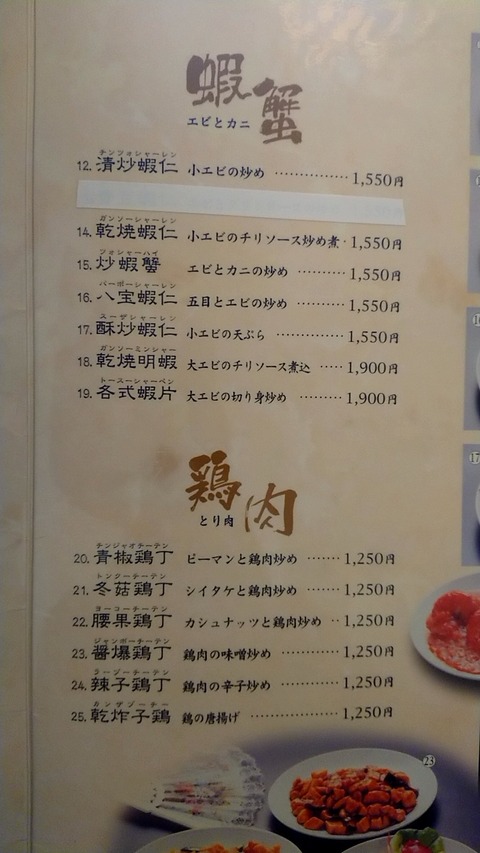 蝦蟹
エビとカニ
チンツォシャーレン
12. 清炒蝦仁 小エビの炒め ‥‥‥‥‥‥ 1,550円
ガンソーシャーレン
14. 乾焼蝦仁 小エビのチリソース炒め煮 ‥ 1,550円
フォシャーハイ
15. 炒蝦蟹 エビとカニの炒め ‥‥‥‥ 1,550円
パーポーシャーレン
16. 八宝蝦仁 五目とエビの炒め ‥‥‥‥ 1,550円
スーザシャーレン
17. 酥炒蝦仁 小エビの天ぷら ‥‥‥‥‥ 1,550円
ガンソーミンシャー
18. 乾焼明蝦 大エビのチリソース煮込 ‥‥ 1,900円
トースーシャーペン
19. 各式蝦片 大エビの切り身炒め ‥‥‥ 1,900円
鶏肉
とり肉
チンジャオチーテン
20. 青椒鶏丁 ピーマンと鶏肉炒め ‥‥‥ 1,250円
トンクーチーテン
21. 冬菇鶏丁 シイタケと鶏肉炒め ‥‥‥ 1,250円
ヨーコーチーテン
22. 腰果鶏丁 カシュナッツと鶏肉炒め ‥ 1,250円
ジャンポーチーテン
23. 醤爆鶏丁 鶏肉の味噌炒め ‥‥‥‥ 1,250円
ラージーチーテン
24. 辣子鶏丁 鶏肉の辛子炒め ‥‥‥‥ 1,250円
カンザヅーチー
25. 乾炸子鶏 鶏の唐揚げ ‥‥‥‥‥‥ 1,250円
23
17